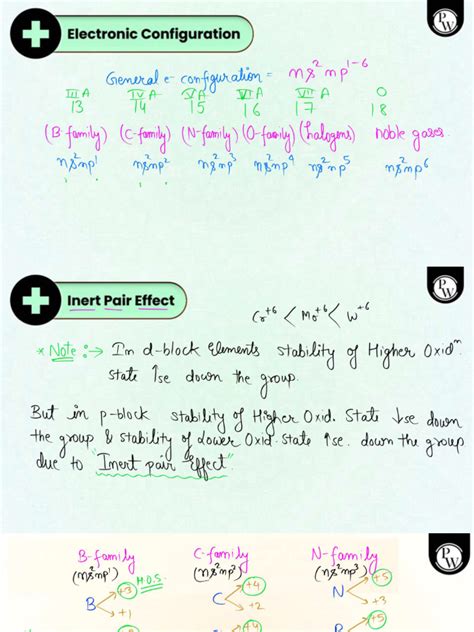 Electronic Configuration
PW
General e- configuration = ns²np¹⁻⁶
III A IV A V A VI A VII A 0
13 14 15 16 17 18
(B family) (C-family) (N-family) (O-family) (halogens) noble gases.
ns²np¹ ns²np² ns²np³ ns²np⁴ ns²np⁵ ns²np⁶
Inert Pair Effect
PW
Cr⁺⁶ < Mo⁺⁶ < W⁺⁶
* Note :→ In d-block elements stability of Higher Oxidⁿ.
state ↑se down the group.
But in p-block stability of Higher Oxid. State ↓se down
the group & stability of Lower Oxid. state ↑se. down the group
due to "Inert pair Effect"
PW
B-family C-family N-family
(ns²np¹) (ns²np²) (ns²np³)
+3 M.O.S. +4 +5
B C N
+1 +2 +3
+4 +5
P